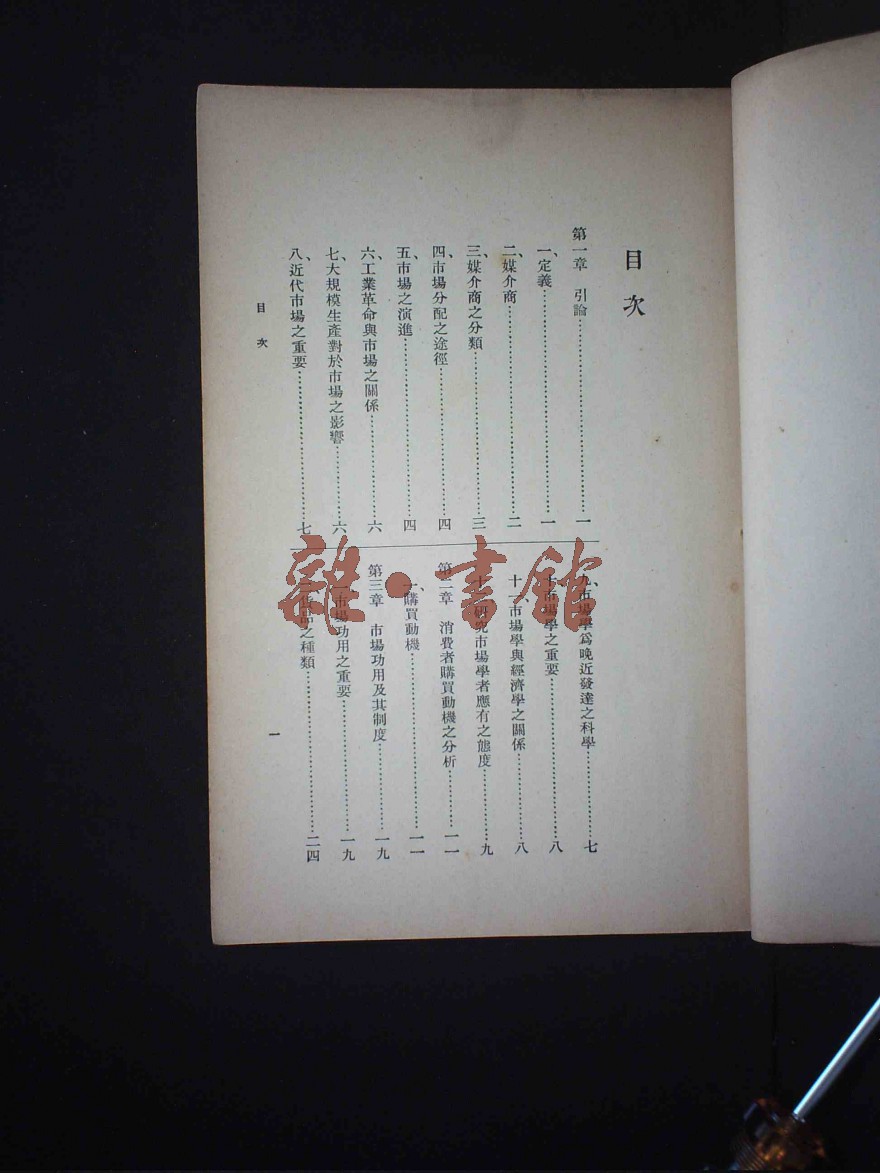 目次
第一章　引論…………一
一、定義…………一
二、媒介商…………二
三、媒介商之分類…………三
四、市場分配之途徑…………四
五、市場之演進…………四
六、工業革命與市場之關係…………六
七、大規模生產對於市場之影響…………六
八、近代市場之重要…………七
九、市場學爲晚近發達之科學…………七
十、市場學之重要…………八
十一、市場學與經濟學之關係…………八
研究市場學者應有之態度…………九
第二章　消費者購買動機之分析…………一一
一、購買動機…………一一
第三章　市場功用及其制度…………一九
一、市場功用之重要…………一九
品之種類…………二四
目次
一
雜·書館